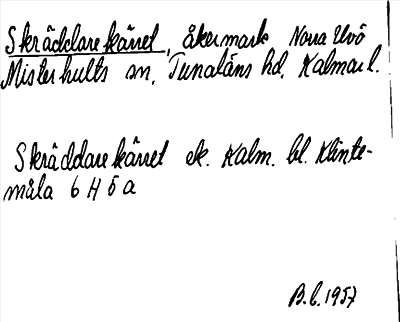 Skräddarekärret, åkermark Norra Uvö
Misterhults sn, Tunaläns hd, Kalmar l.
Skräddarekärret ek. Kalm. bl. Klinte-
måla 6 H 5 a
B.L. 1957